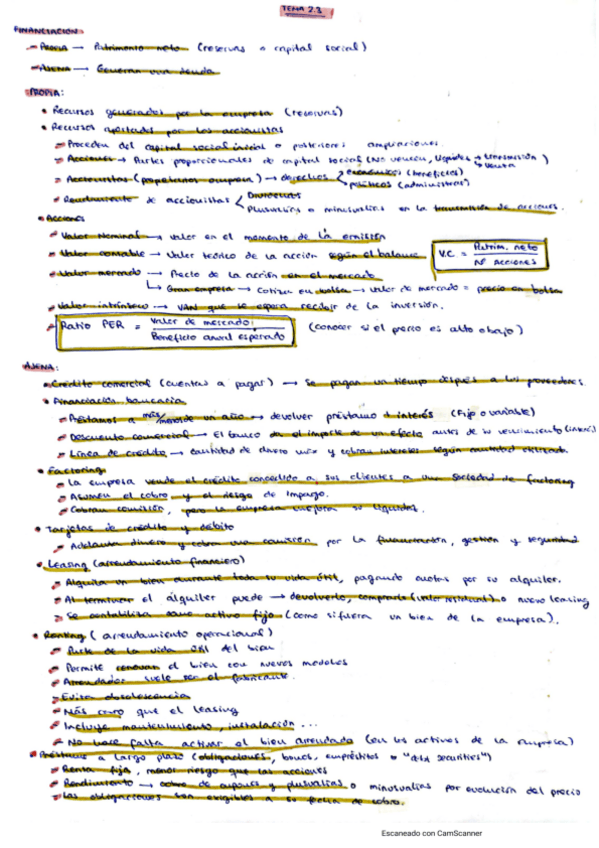 TEMA 2.3
FINANCIACIÓN:
- PROPIA → Patrimonio neto (reservas o capital social)
- AJENA → Generan una deuda
PROPIA:
• Recursos generados por la empresa (reservas)
• Recursos aportados por los accionistas
- Proceden del capital social inicial o posteriores ampliaciones.
- Acciones → Partes proporcionales de capital social (No vencen, líquidas → transmisión) venta
- Accionistas (propietarios empresa) → derechos económicos (beneficios) políticos (administrar)
- Rendimiento de accionistas Dividendos
Plusvalías o minusvalías en la transmisión de acciones.
• Acciones
- Valor Nominal → valor en el momento de la emisión
- Valor contable → Valor teórico de la acción según el balance V.C = Patrim. neto / Nº acciones
- Valor mercado → Precio de la acción en el mercado
↳ Gran empresa → Cotiza en bolsa → valor de mercado = precio en bolsa
- Valor intrínseco → VAN que se espera recibir de la inversión.
- Ratio PER = Valor de mercado / Beneficio anual esperado (conocer si el precio es alto o bajo)
AJENA:
• Crédito comercial (cuentas a pagar) → Se pagan un tiempo después a los proveedores.
• Financiación bancaria
- Préstamos a más/menos de un año → devolver préstamo + interés (Fijo o variable)
- Descuento comercial → El banco da el importe de un efecto antes de su vencimiento (interés)
- Línea de crédito → cantidad de dinero max y cobran intereses según cantidad utilizada.
• Factoring
- La empresa vende el crédito concedido a sus clientes a una sociedad de factoring
- Asumen el cobro y el riesgo de impago.
- Cobran comisión, pero la empresa mejora su liquidez.
• Tarjetas de crédito y débito
- Adelanta dinero y cobra una comisión por la financiación, gestión y seguridad
• Leasing (arrendamiento financiero)
- Alquila un bien durante toda su vida útil, pagando cuotas por su alquiler.
- Al terminar el alquiler puede → devolverlo, comprarlo (valor residual) o nuevo leasing
- Se contabiliza como activo fijo (como si fuera un bien de la empresa).
• Renting (arrendamiento operacional)
- Parte de la vida útil del bien
- Permite renovar el bien con nuevos modelos
- Arrendador suele ser el fabricante.
- Evita obsolescencia
- Más caro que el leasing
- Incluye mantenimiento, instalación ...
- No hace falta activar el bien arrendado (en los activos de la empresa)
• Préstamo a largo plazo (obligaciones, bonos, empréstitos o "debt securities")
- Renta fija, menor riesgo que las acciones
- Rendimiento → cobro de cupones y plusvalías o minusvalías por evolución del precio
- Las obligaciones son exigibles a su fecha de cobro.
Escaneado con CamScanner